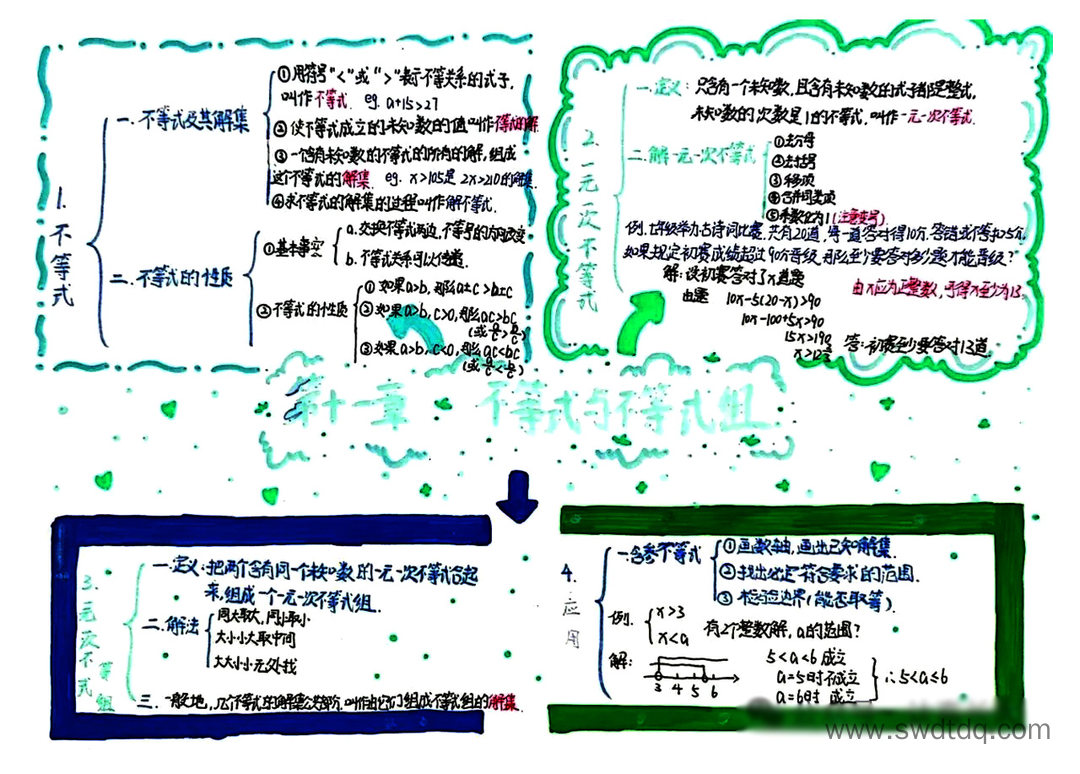 1. 不等式
一. 不等式及其解集
①用符号"<"或">"表示不等关系的式子,
叫作不等式. eg. a+15>27
②使不等式成立的未知数的值叫作不等式的解.
③一个含有未知数的不等式的所有的解,组成
这个不等式的解集. eg. x>105是2x>210的解集.
④求不等式的解集的过程叫作解不等式.
二. 不等式的性质
①基本事实
a. 交换不等式两边,不等号的方向改变
b. 不等式关系可以传递.
②不等式的性质
① 如果a>b, 那么a±c>b±c
②如果a>b, c>0, 那么ac>bc
(或a/c>b/c)
③如果a>b, c<0, 那么ac<bc
(或a/c<b/c)
2. 一元一次不等式
一.定义: 只含有一个未知数,且含有未知数的式子都是整式,
未知数的次数是1的不等式.叫作一元一次不等式.
二.解一元一次不等式
①去分母
②去括号
③移项
④合并同类项
⑤系数化为1(注意变号)
例.七年级举办古诗词比赛,共有20道,每一道答对得10分.答错或不答扣5分.
如果规定初赛成绩超过90分晋级,那么至少要答对多少题才能晋级?
解:设初赛答对了x道题
由题 10x-5(20-x)>90
10x-100+5x>90
15x>190
x>12⅔
由x应为正整数,可得x至少为13.
答:初赛至少要答对13道.
第十一章 不等式与不等式组
3. 一元一次不等式组
一.定义:把两个含有同一个未知数的一元一次不等式合起
来,组成一个一元一次不等式组.
二.解法
同大取大,同小取小
大小小大取中间
大大小小无处找
三. 一般地,几个不等式的解集的公共部分,叫作由它们组成不等式组的解集.
4. 应用
一.含参不等式
①画数轴,画出已知解集.
②找出必定符合要求的范围.
③ 检验边界(能否取等).
例. x>3
x<a
有2个整数解, a的范围?
解:
3 4 5 6
5<a<6 成立
a=5时不成立
a=6时 成立
∴5<a≤6
www.swdtdq.com